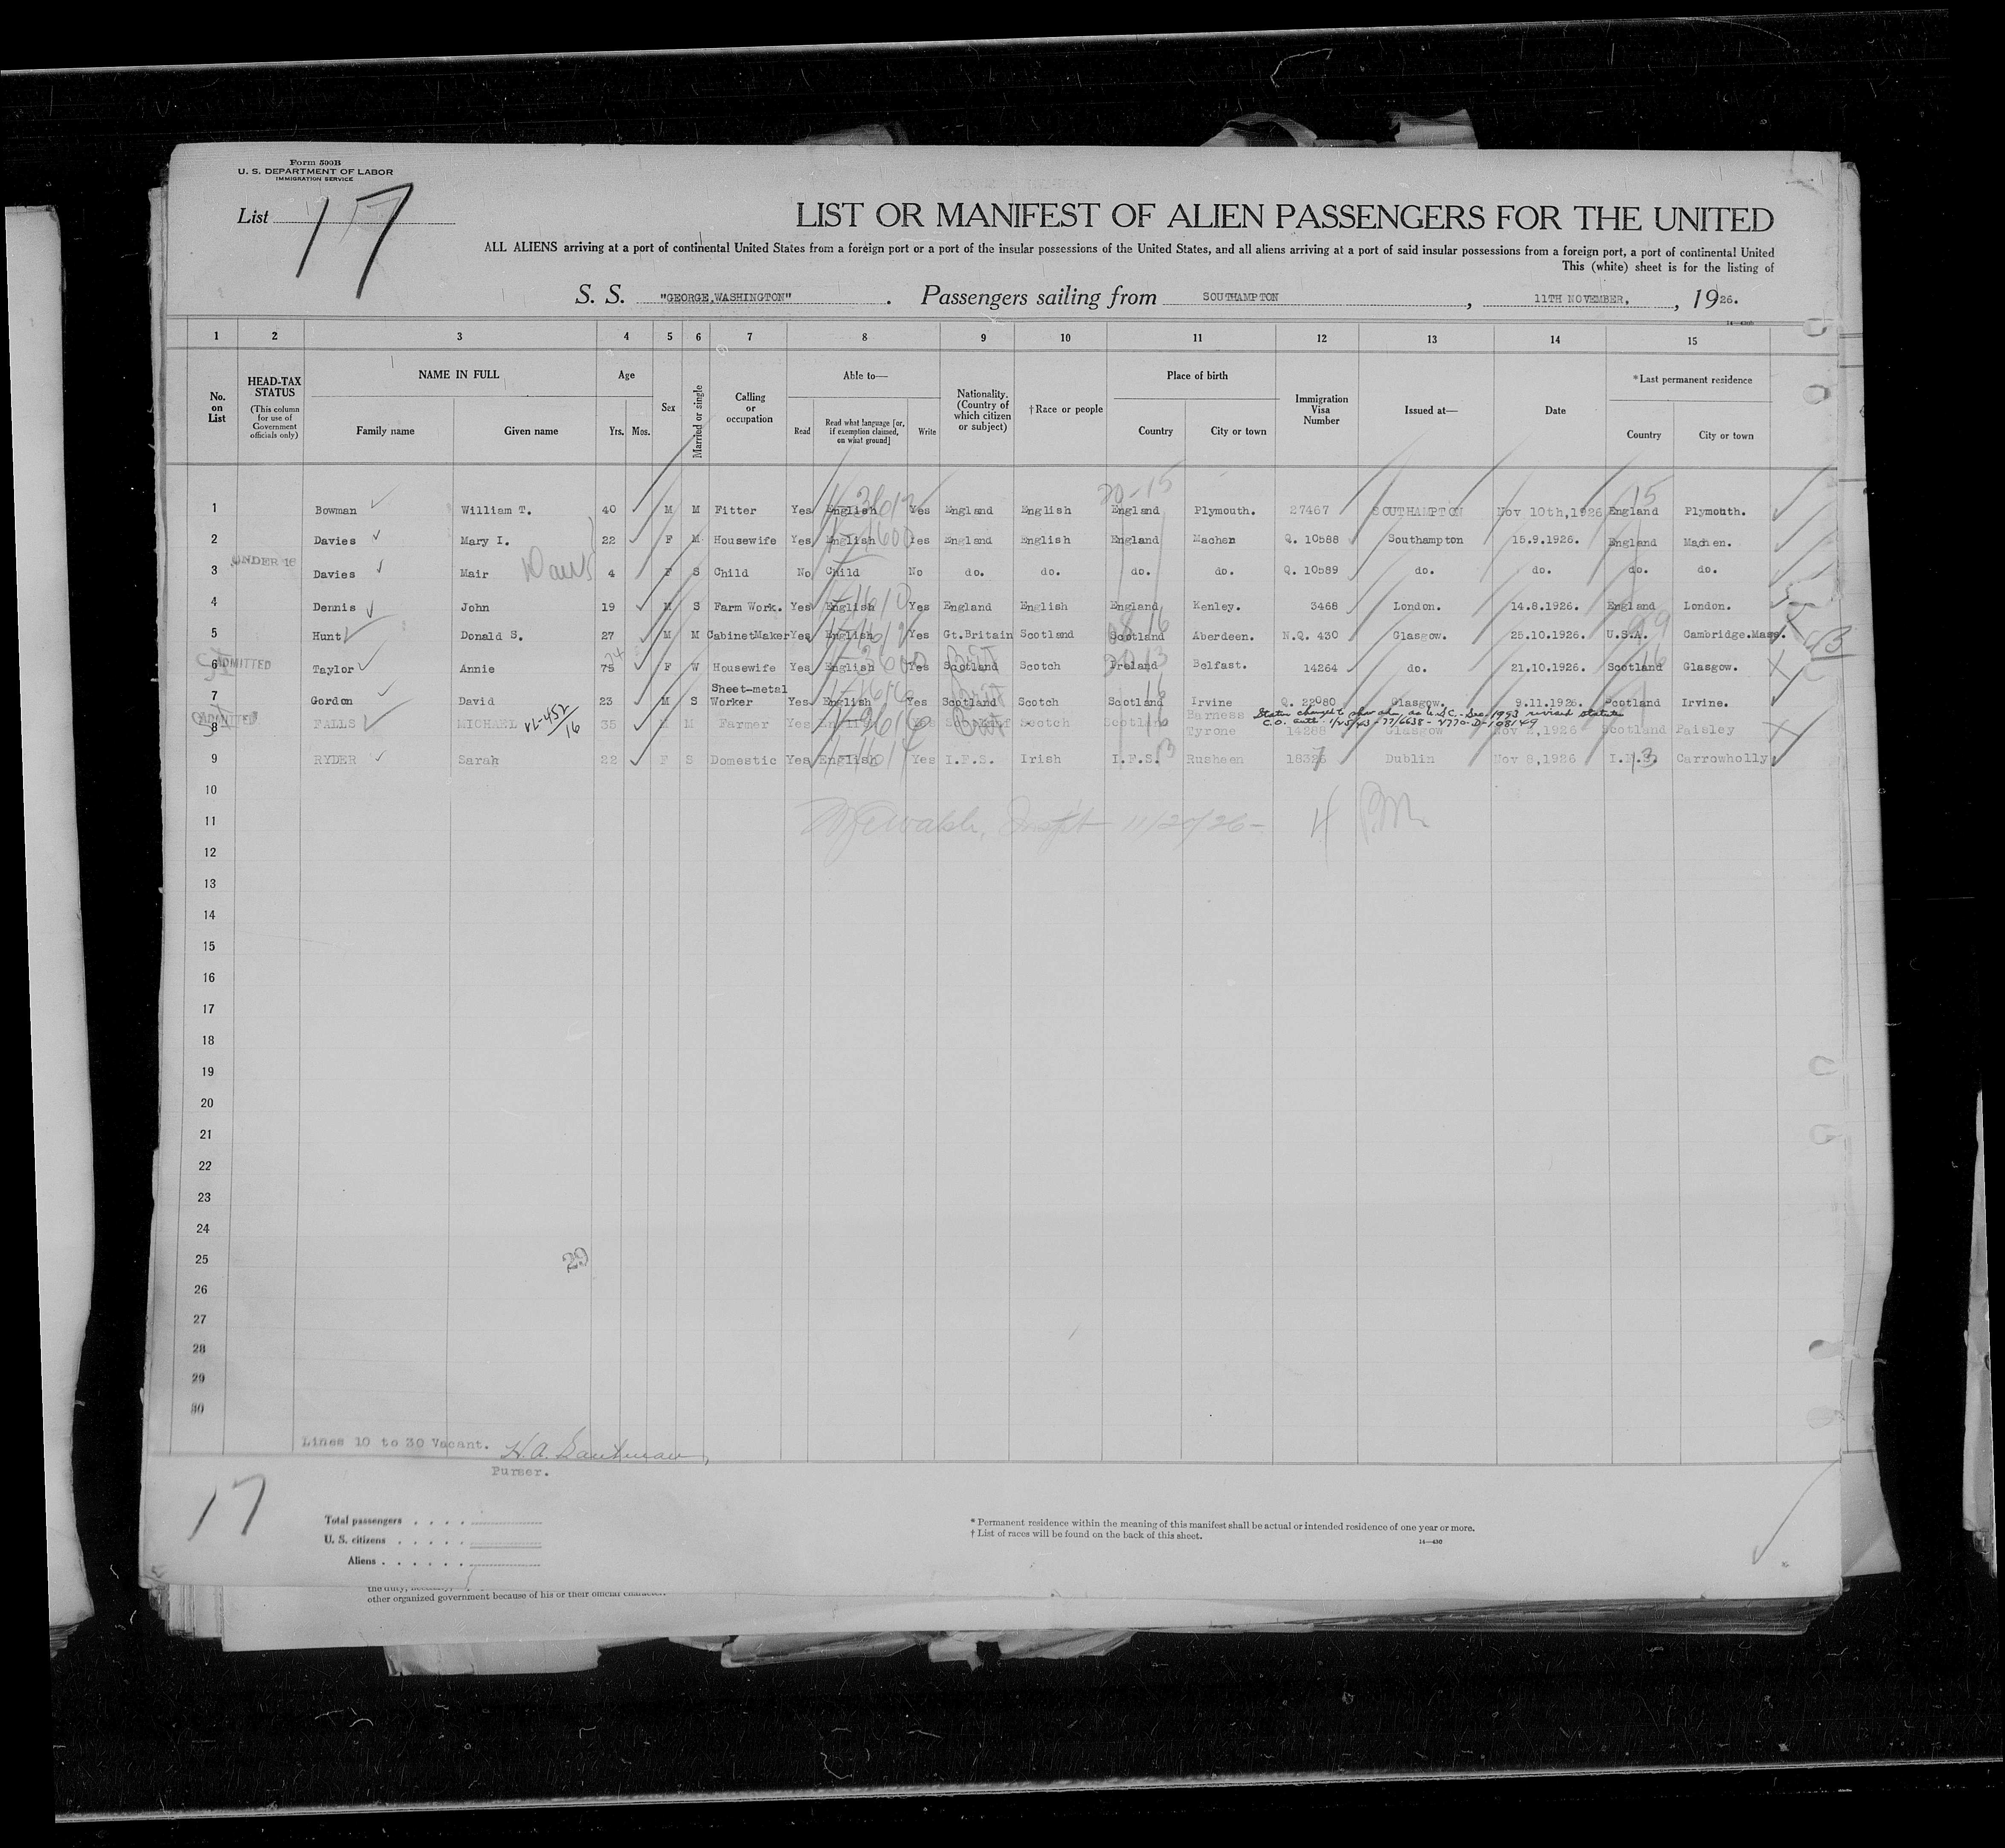 Form 500B
U. S. DEPARTMENT OF LABOR
IMMIGRATION SERVICE
List 17
LIST OR MANIFEST OF ALIEN PASSENGERS FOR THE UNITED
ALL ALIENS arriving at a port of continental United States from a foreign port or a port of the insular possessions of the United States, and all aliens arriving at a port of said insular possessions from a foreign port, a port of continental United
This (white) sheet is for the listing of
S. S. "GEORGE WASHINGTON" . Passengers sailing from SOUTHAMPTON , 11TH NOVEMBER, , 1926.
1 2 3 4 5 6 7 8 9 10 11 12 13 14 15
No. on List
HEAD-TAX STATUS (This column for use of Government officials only)
NAME IN FULL Family name Given name
Age Yrs. Mos.
Sex
Married or single
Calling or occupation
Able to— Read Read what language [or, if exemption claimed, on what ground] Write
Nationality. (Country of which citizen or subject)
†Race or people
Place of birth Country City or town
Immigration Visa Number
Issued at—
Date
*Last permanent residence Country City or town
20-15 15
1 Bowman William T. 40 M M Fitter Yes English Yes England English England Plymouth. 27467 SOUTHAMPTON Nov 10th,1926 England Plymouth.
2 Davies Mary I. 22 F M Housewife Yes English Yes England English England Machen Q. 10588 Southampton 15.9.1926. England Machen.
3 UNDER 16 Davies Mair 4 F S Child No Child No do. do. do. do. Q. 10589 do. do. do. do.
4 Dennis John 19 M S Farm Work. Yes English Yes England English England Kenley. 3468 London. 14.8.1926. England London.
5 Hunt Donald S. 27 M M CabinetMaker Yes English Yes Gt.Britain Scotland Scotland Aberdeen. N.Q. 430 Glasgow. 25.10.1926. U.S.A. Cambridge.Mass.
6 ADMITTED Taylor Annie 75 F W Housewife Yes English Yes Scotland Scotch Ireland Belfast. 14264 do. 21.10.1926. Scotland Glasgow.
7 Gordon David 23 M S Sheet-metal Worker Yes English Yes Scotland Scotch Scotland Irvine Q. 22080 Glasgow. 9.11.1926. Scotland Irvine.
8 ADMITTED FALLS MICHAEL VL-452/16 35 M M Farmer Yes English Scotch Scotland Barness Tyrone 14288 Glasgow Nov 2,1926 Scotland Paisley
9 RYDER Sarah 22 F S Domestic Yes English Yes I.F.S. Irish I.F.S. Rusheen 18326 Dublin Nov 8,1926 I.F.S. Carrowholly
10
11 11/20/26
12
13
14
15
16
17
18
19
20
21
22
23
24
25 29
26
27
28
29
30
Lines 10 to 30 Vacant.
Purser.
17
Total passengers . . . .
U. S. citizens . . . . .
Aliens . . . . . .
* Permanent residence within the meaning of this manifest shall be actual or intended residence of one year or more.
† List of races will be found on the back of this sheet.
14—430
other organized government because of his or their official character.